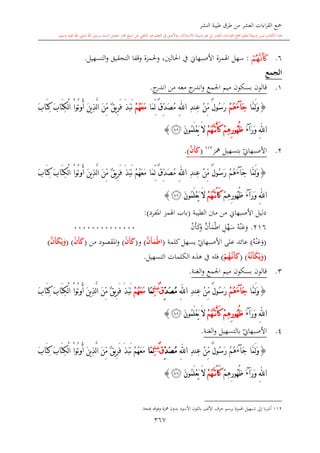 جمع القراءات العشر من طرق طيبة النشر
٦. كَأَنَّهُمْ : سهل الهمزة الأصبهاني في الحالين، ولحمزة وقفا التحقيق والتسهيل.
الجمع
١. قالون بسكون ميم الجمع واندرج معه من اندرج.
﴿ وَلَمَّا جَآءَهُمْ رَسُولٌ مِّنْ عِندِ اللهِ مُصَدِّقٌ لِّمَا مَعَهُمْ نَبَذَ فَرِيقٌ مِّنَ الَّذِينَ أُوتُوا الْكِتَابَ كِتَابَ
اللهِ وَرَآءَ ظُهُورِهِمْ كَأَنَّهُمْ لَا يَعْلَمُونَ ﴾
٢. الأصبهانيّ بتسهيل همز ١١٢ (كَأَنَّ).
﴿ وَلَمَّا جَآءَهُمْ رَسُولٌ مِّنْ عِندِ اللهِ مُصَدِّقٌ لِّمَا مَعَهُمْ نَبَذَ فَرِيقٌ مِّنَ الَّذِينَ أُوتُوا الْكِتَابَ كِتَابَ
اللهِ وَرَآءَ ظُهُورِهِمْ كَأَنَّهُمْ لَا يَعْلَمُونَ ﴾
دليل الأصبهاني من متن الطيبة (باب الهمز المفرد):
٢١٦. وَعَنْهُ سَهِّلِ اطْمَأَنَّ وَكَأَنْ
(وَعَنْهُ) عائد على الأصبهانيّ يسهل كلمة (اطْمَأَنَّ) و(وَكَأَنْ) والمقصود من (كَأَنْ) (كَأَنَّ) (وَيْكَأَنَّ)
(وَيْكَأَنَّهُ) (كَأَنَّهُمْ) فله في هذه الكلمات التسهيل.
٣. قالون بسكون ميم الجمع والغنة.
﴿ وَلَمَّا جَآءَهُمْ رَسُولٌ مِّنْ عِندِ اللهِ مُصَدِّقٌ لِّمَا مَعَهُمْ نَبَذَ فَرِيقٌ مِّنَ الَّذِينَ أُوتُوا الْكِتَابَ كِتَابَ
اللهِ وَرَآءَ ظُهُورِهِمْ كَأَنَّهُمْ لَا يَعْلَمُونَ ﴾
٤. الأصبهانيّ بالتسهيل والغنة.
﴿ وَلَمَّا جَآءَهُمْ رَسُولٌ مِّنْ عِندِ اللهِ مُصَدِّقٌ لِّمَا مَعَهُمْ نَبَذَ فَرِيقٌ مِّنَ الَّذِينَ أُوتُوا الْكِتَابَ كِتَابَ
اللهِ وَرَآءَ ظُهُورِهِمْ كَأَنَّهُمْ لَا يَعْلَمُونَ ﴾
١١٢ أشرنا إلى تسهيل الهمزة برسم حرف الألف باللون الأسود بدون همزة وفوقه فتحة.
٣٦٧